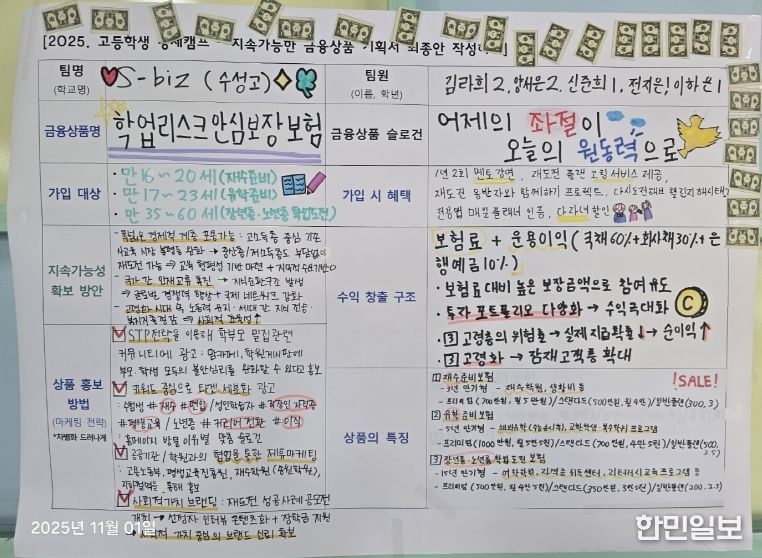 [2025. 고등학생 경제캠프 - 지속가능한 금융상품 기획서 최종안 작성
팀명
(학교명)
S-biz (수성고)
팀원
(이름, 학년)
김라희 2, 양서은 2, 신준희 1, 전지은, 이하은 1
금융상품명
학업리스크안심보장보험
금융상품 슬로건
어제의 좌절이
오늘의 원동력으로
가입 대상
• 만 16~20세 (재수준비)
• 만 17~23세 (유학준비)
• 만 35~60세 (장년층·노년층 학업도전)
가입 시 혜택
1년 2회 멘토강연, 재도전 플랜 코칭 서비스 제공,
재도전 동반자와 함께하기 프로젝트, 다시도전
인증, 다자녀할인
지속가능성
확보 방안
- 폭넓은 경제적 계층 포용가능: 고소득층 중심 기존
사교육 시장 불평등 완화 → 중산층/저소득층도 부담없이
재도전 가능 → 교육 형평성 기반 마련 + 지속적 수요기반
- 국가 간 인재교류 촉진 → 지식순환구조 발생
→ 글로벌 경쟁력 향상 + 국제 네트워크 강화
- 고령화 시대 속 노동력 유지·세대 간 지식 전승
→ 사회적 효용성↑
수익 창출 구조
보험료 + 운용이익 (국채 60% + 회사채 30% + 은
행예금 10%)
• 보험료 대비 높은 보장금액으로 참여 유도
• 투자 포트폴리오 다양화 → 수익극대화
C
• 3 고령층의 위험률 → 실제 지급확률↓ → 순이익↑
• 3 고령화 → 잠재고객층 확대
상품 홍보
방법
(마케팅 전략)
*차별화 드러나게
STP전략을 이용해 학부모 밀집관련
커뮤니티에 광고: 맘카페, 학원게시판에
부모·학생 모두의 불안심리를 완화할 수 있다고 홍보
키워드 중심으로 타겟 세분화 광고
: #재수 #편입 /성인학습자 #
#평생교육 / 노년층 #커리어 전환 #이직
: 홈페이지 방문 이유별 맞춤 슬로건
공공기관/학원과의 협업을 통한 제휴마케팅
: 고용노동부, 평생교육진흥원, 재수학원(
통해 홍보
사회적가치 브랜딩: 재도전 성공사례 공모전
개최 → 선정자 인터뷰 콘텐츠화 + 장학금 지원
→ 사회적 가치 중심의 브랜드 신뢰 확보
상품의 특징
!SALE!
1 재수준비보험
- 3년 만기형 - 재수학원, 생활비 등
- 프리미엄(700만원, 월 5만원)/스탠다드(500만원, 월 4만)/일반플랜(300, 3)
2 유학 준비보험
- 5년 만기형
- 프리미엄(1000만원, 월 5만 5천)/스탠다드(700만원, 4만 5천)/일반플랜(500,
3.5)
3 장년층·노년층 학업도전 보험
- 15년 만기형 -
- 프리미엄(500만원, 월 4만 5천)/스탠다드(350만원, 3만 5천)/일반플랜(200, 2.5)
2025년 11월 01일
한민일보